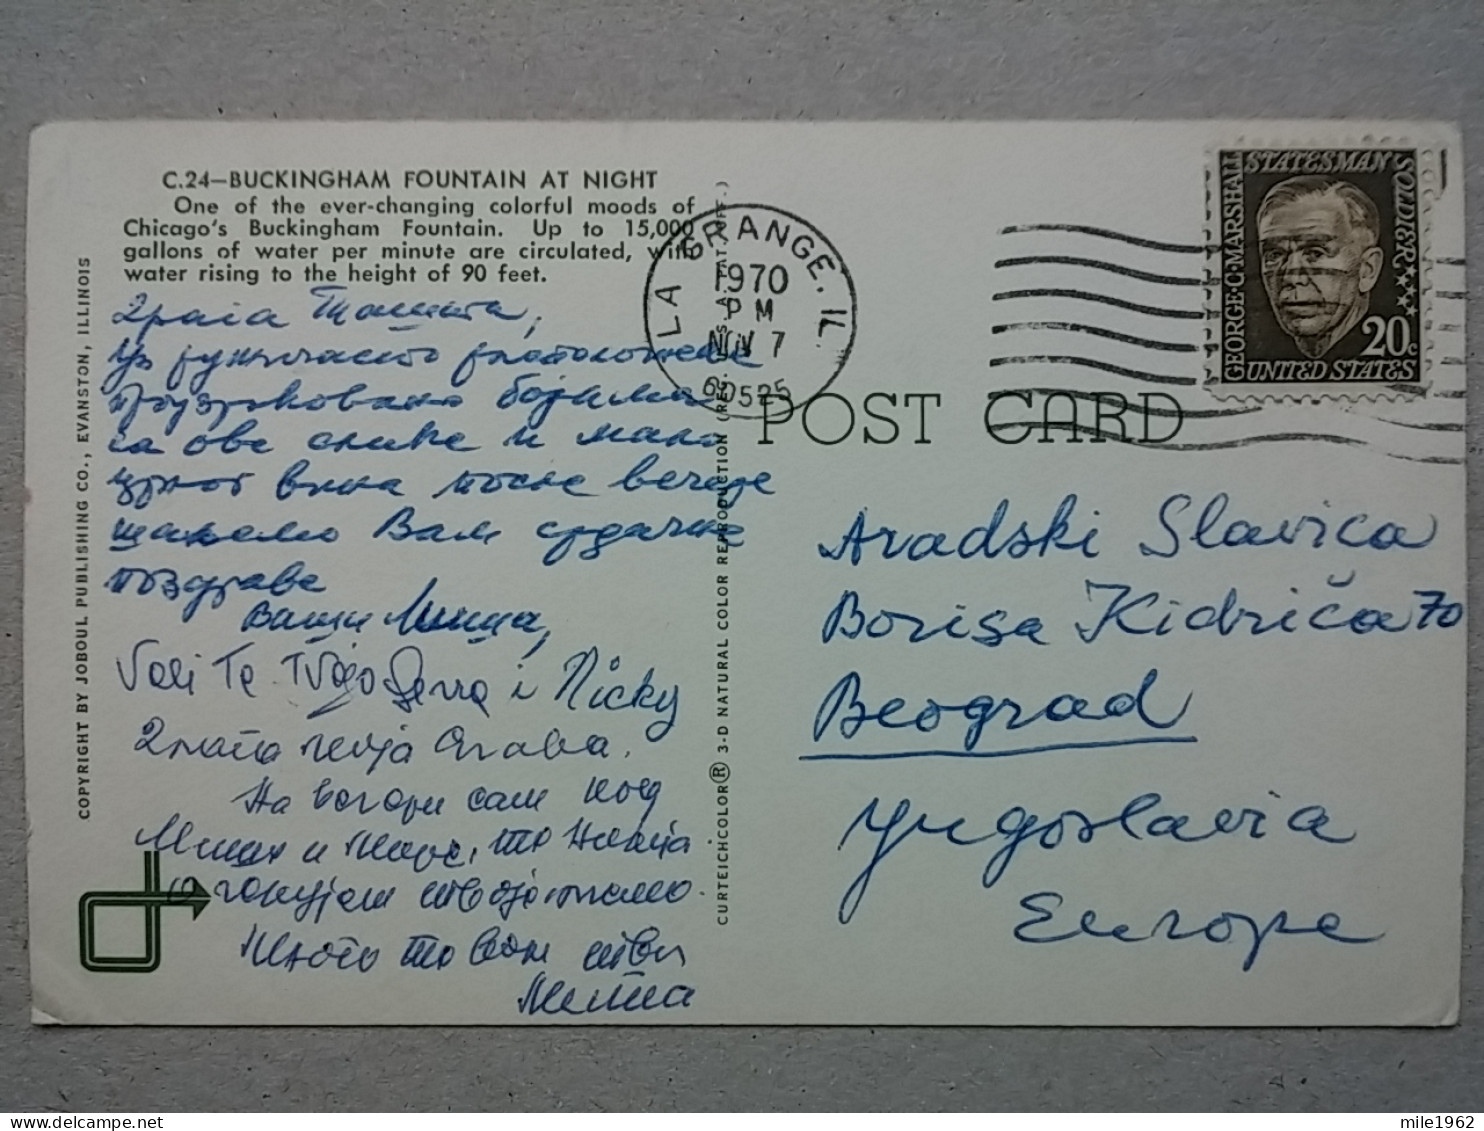 C.24—BUCKINGHAM FOUNTAIN AT NIGHT
One of the ever-changing colorful moods of
Chicago's Buckingham Fountain. Up to 15,000
gallons of water per minute are circulated, with
water rising to the height of 90 feet.
COPYRIGHT BY JOBOUL PUBLISHING CO., EVANSTON, ILLINOIS
драга
Уз ружичасто расположење
проузроковано бојама
са ове слике и мало
црног вина после вечере
шаљемо Вам срдачне
поздраве
Ваши Миша,
Voli Te Tvoja i Nicky
Злато моја Слава.
На вечери сам код
Мише и
очекујем твоје писмо.
Много те воли твој
CURTEICHCOLOR® 3-D NATURAL COLOR REPRODUCTION (REG. U.S.A. PAT. OFF.)
LA GRANGE, IL.
1970
PM
NOV 7
60525
POST CARD
GEORGE·C·MARSHALL
STATESMAN
SOLDIER
20c
UNITED STATES
Aradski Slavica
Borisa Kidriča 70
Beograd
Yugoslavia
Europe
mile1962